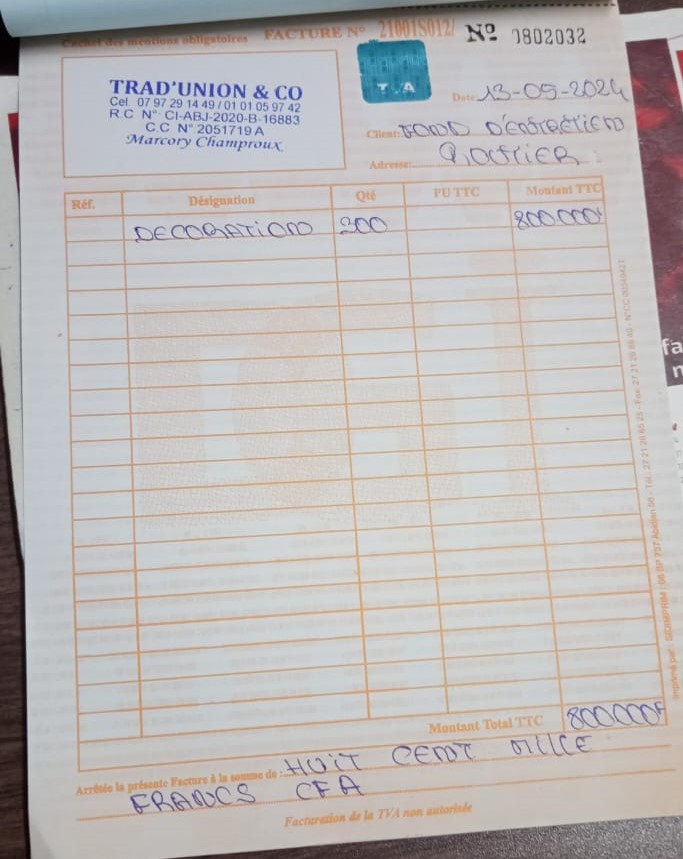 Cachet des mentions obligatoires FACTURE N° 21001S012/ Nº 0802032
TRAD'UNION & CO
Cel. 07 97 29 14 49 / 01 01 05 97 42
R.C N° CI-ABJ-2020-B-16883
C.C N° 2051719 A
Marcory Champroux
T.V.A
Date: 13-09-2024
Client: FOND D'ENTRETIEN
ROUTIER
Adresse:
Réf. Désignation Qté PU TTC Montant TTC
DECORATION 300 800.000F
Montant Total TTC 800000F
Arrêtée la présente Facture à la somme de : HUIT CENT MILLE
FRANCS CFA
Facturation de la TVA non autorisée
fa